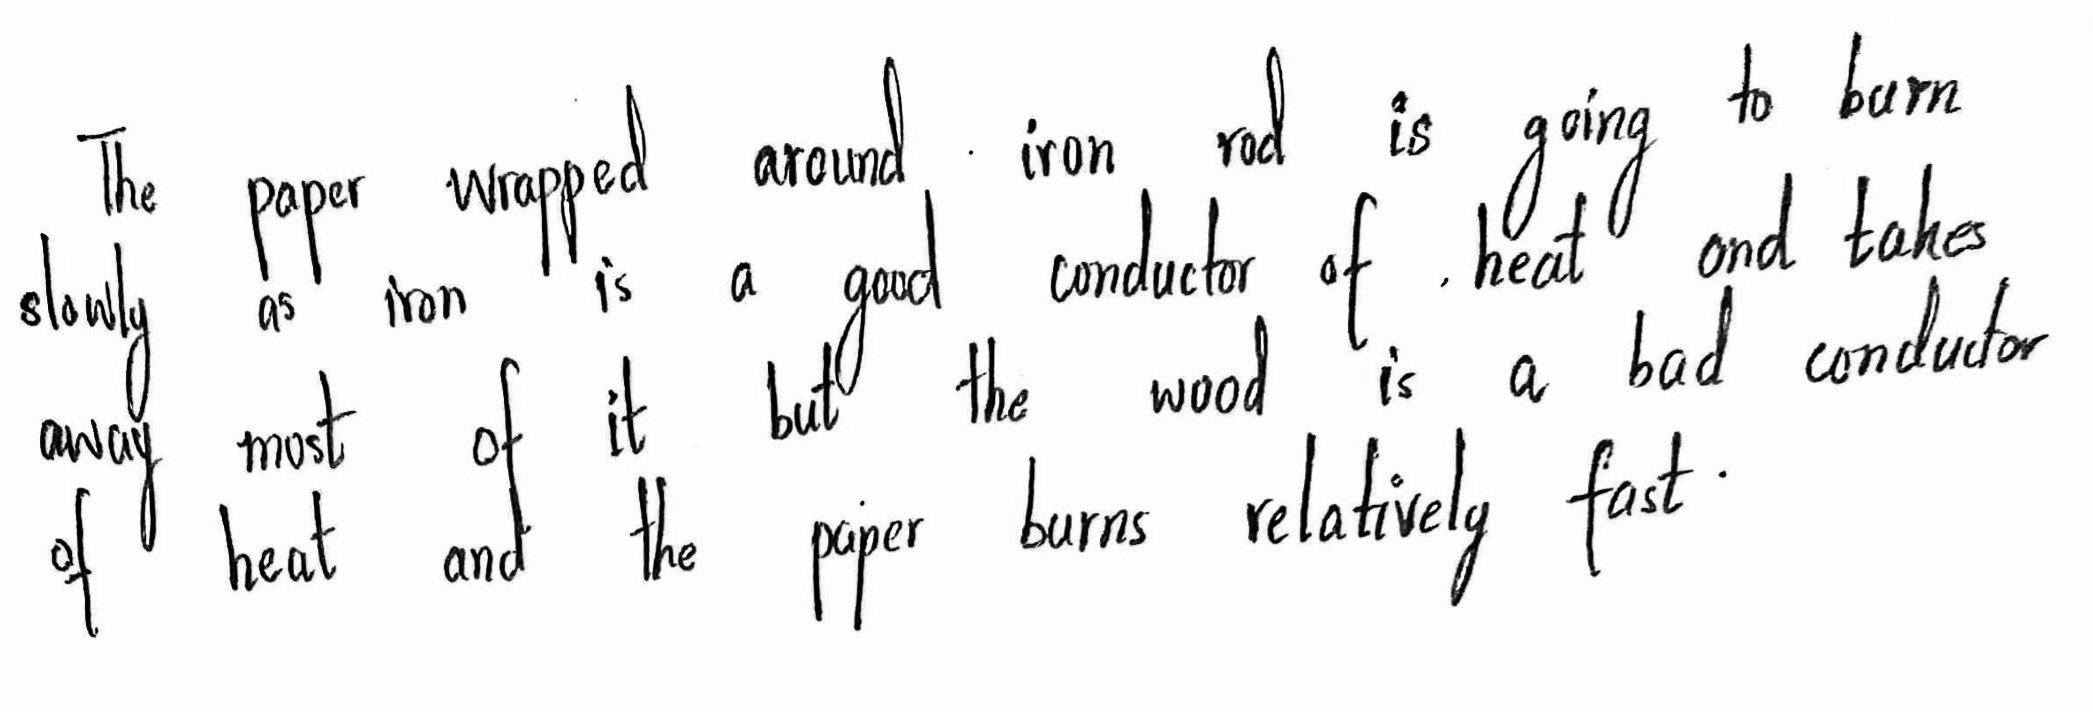 The paper wrapped around iron rod is going to burn
slowly as iron is a good conductor of heat and takes
away most of it but the wood is a bad conductor
of heat and the paper burns relatively fast.